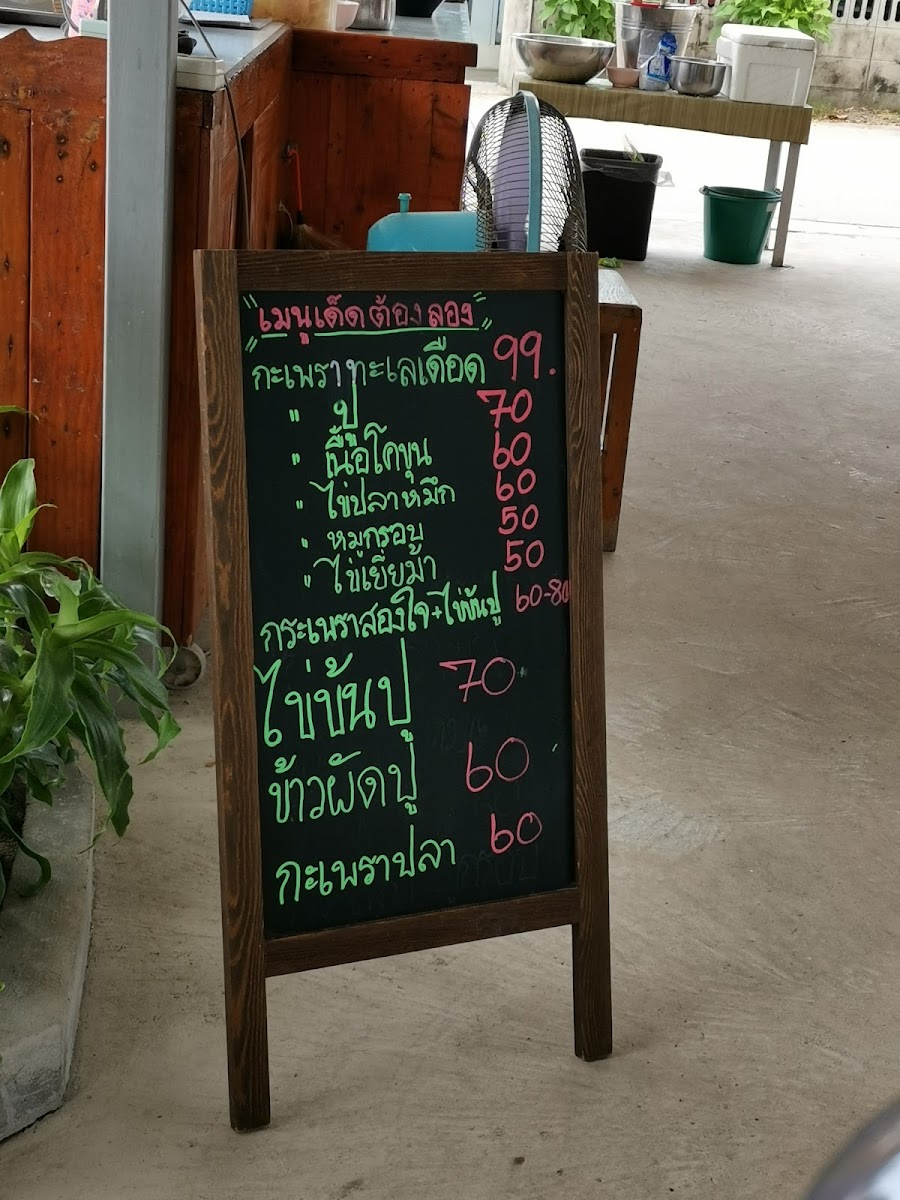 "เมนูเด็ดต้องลอง"
กะเพราทะเลเดือด 99.
" ปู 70
" เนื้อโคขุน 60
" ไข่ปลาหมึก 60
" หมูกรอบ 50
" ไข่เยี่ยวม้า 50
กระเพราสองใจ+ไข่พันปู 60-80
ไข่ข้นปู 70
ข้าวผัดปู 60
กะเพราปลา 60